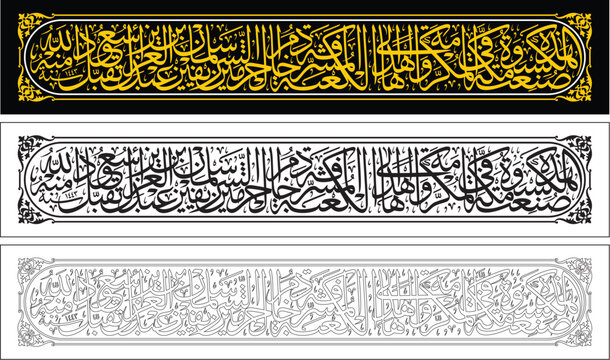 صنعت هذه الكسوة في مكة المكرمة وأهداها إلى الكعبة المشرفة خادم الحرمين الشريفين سلمان بن عبدالعزيز آل سعود تقبل الله منه
صنعت هذه الكسوة في مكة المكرمة وأهداها إلى الكعبة المشرفة خادم الحرمين الشريفين سلمان بن عبدالعزيز آل سعود تقبل الله منه
صنعت هذه الكسوة في مكة المكرمة وأهداها إلى الكعبة المشرفة خادم الحرمين الشريفين سلمان بن عبدالعزيز آل سعود تقبل الله منه